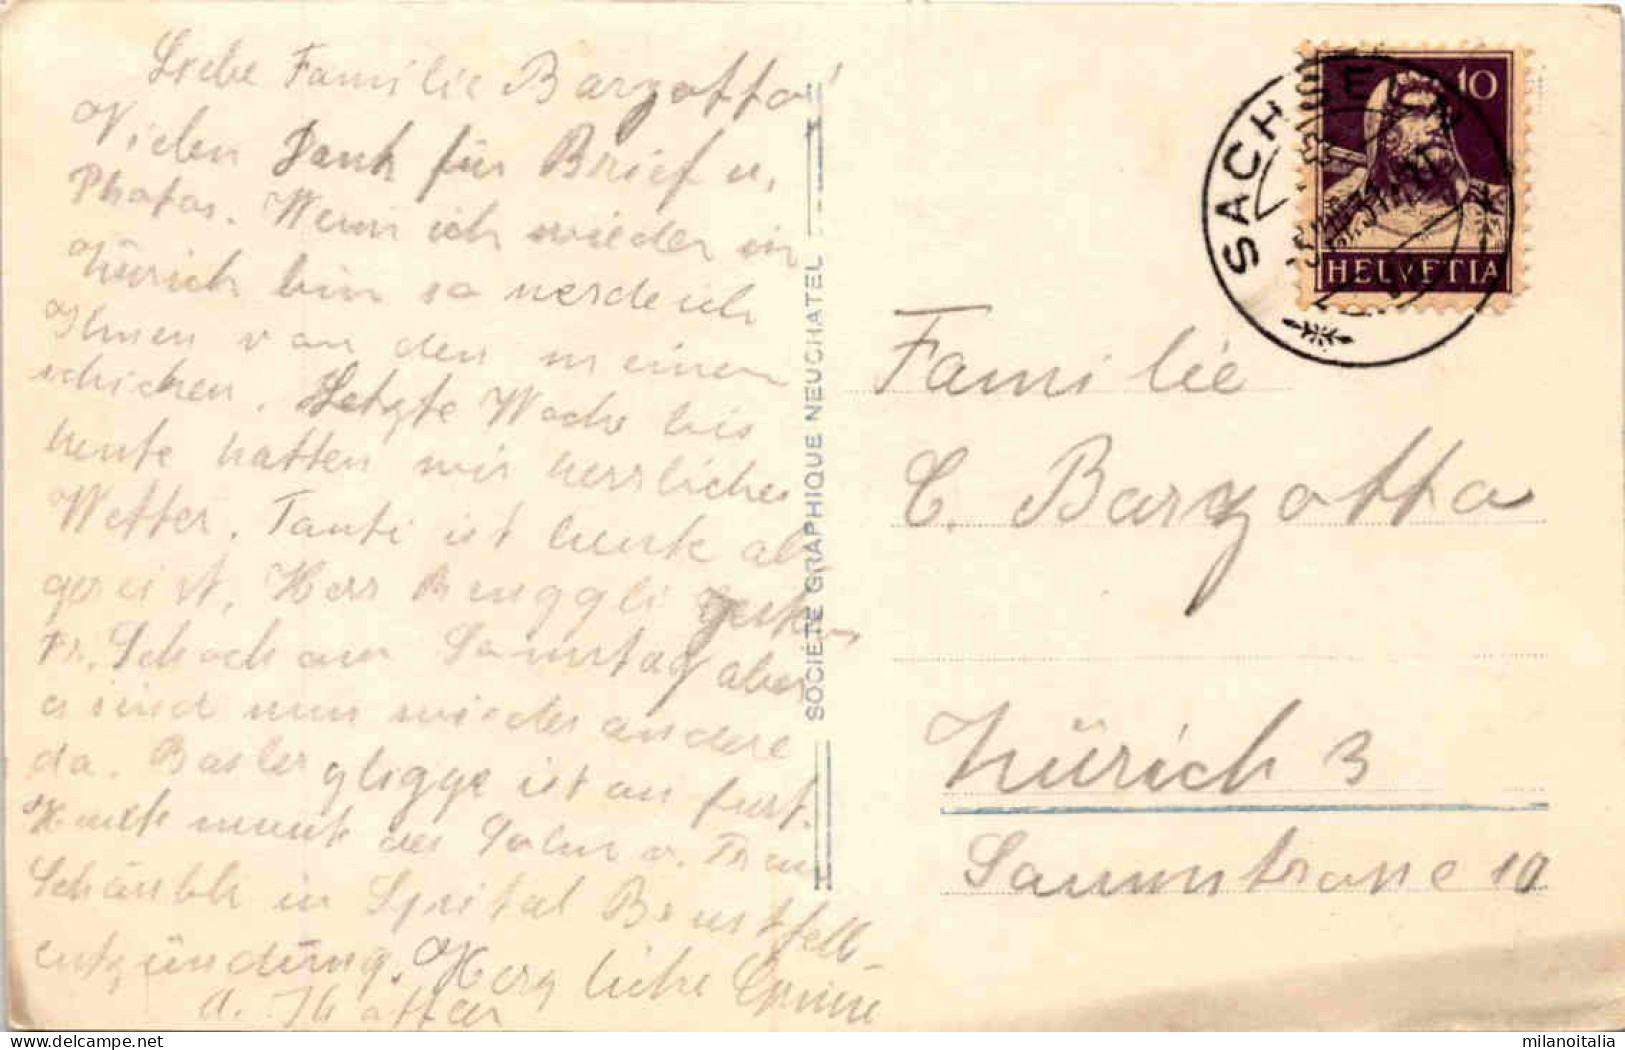 Liebe Familie Barzotto!
Vielen Dank für Brief u.
Photos. Wenn ich wieder in
Zürich bin so werde ich
Ihnen von den meinen
schicken. Letzte Woche bis
heute hatten wir herrliches
Wetter. Tanti ist heute ab-
gereist, Herr Benggli gestern
Fr. Schoch am Samstag aber
es sind nun wieder andere
da. Basler ist an fort.
Heute musste der Sohn v. Frau
in Spital Brustfell-
entzündung. Herzliche Grüsse
SOCIÉTÉ GRAPHIQUE NEUCHATEL
SACHSELN
10
HELVETIA
Familie
C. Barzotto
Zürich 3
milanoitalia